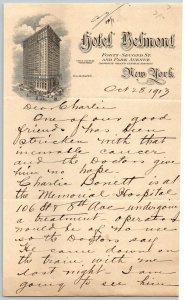 Hotel Belmont
Forty-Second St.
and Park Avenue
Opposite Grand Central Station
New York.
Oct 28 1913
Dear Charlie
One of our good
friends has been
stricken with that
incurable cancer
and the Doctors give
him no hope.
Charlie Bonett is at
the Memorial Hospital
106 St & 8th Ave undergoing
a treatment operation
would be of no use
so the Doctors say
He came down on
the train with me
last night. I am
going to see him